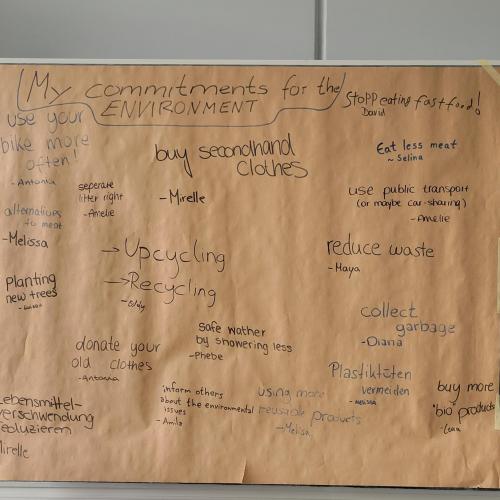 My commitments for the
ENVIRONMENT
Stopp eating fastfood!
David
use your
bike more
often!
- Antonia
buy secondhand
clothes
- Mirelle
Eat less meat
~ Selina
seperate
litter right
- Amelie
use public transport
(or maybe car-sharing)
- Amelie
alternatives
to meat
- Melissa
→ Upcycling
→ Recycling
reduce waste
- Maya
Planting
new trees
collect
garbage
- Diana
safe wather
by showering less
- Phebe
donate your
old clothes
- Antonia
Plastiktüten
vermeiden
- Melissa
inform others
about the environmental
issues
- Amila
using more
reusable products
- Melisa
buy more
"bio" products
- Lena
Lebensmittel-
verschwendung
reduzieren
Mirelle